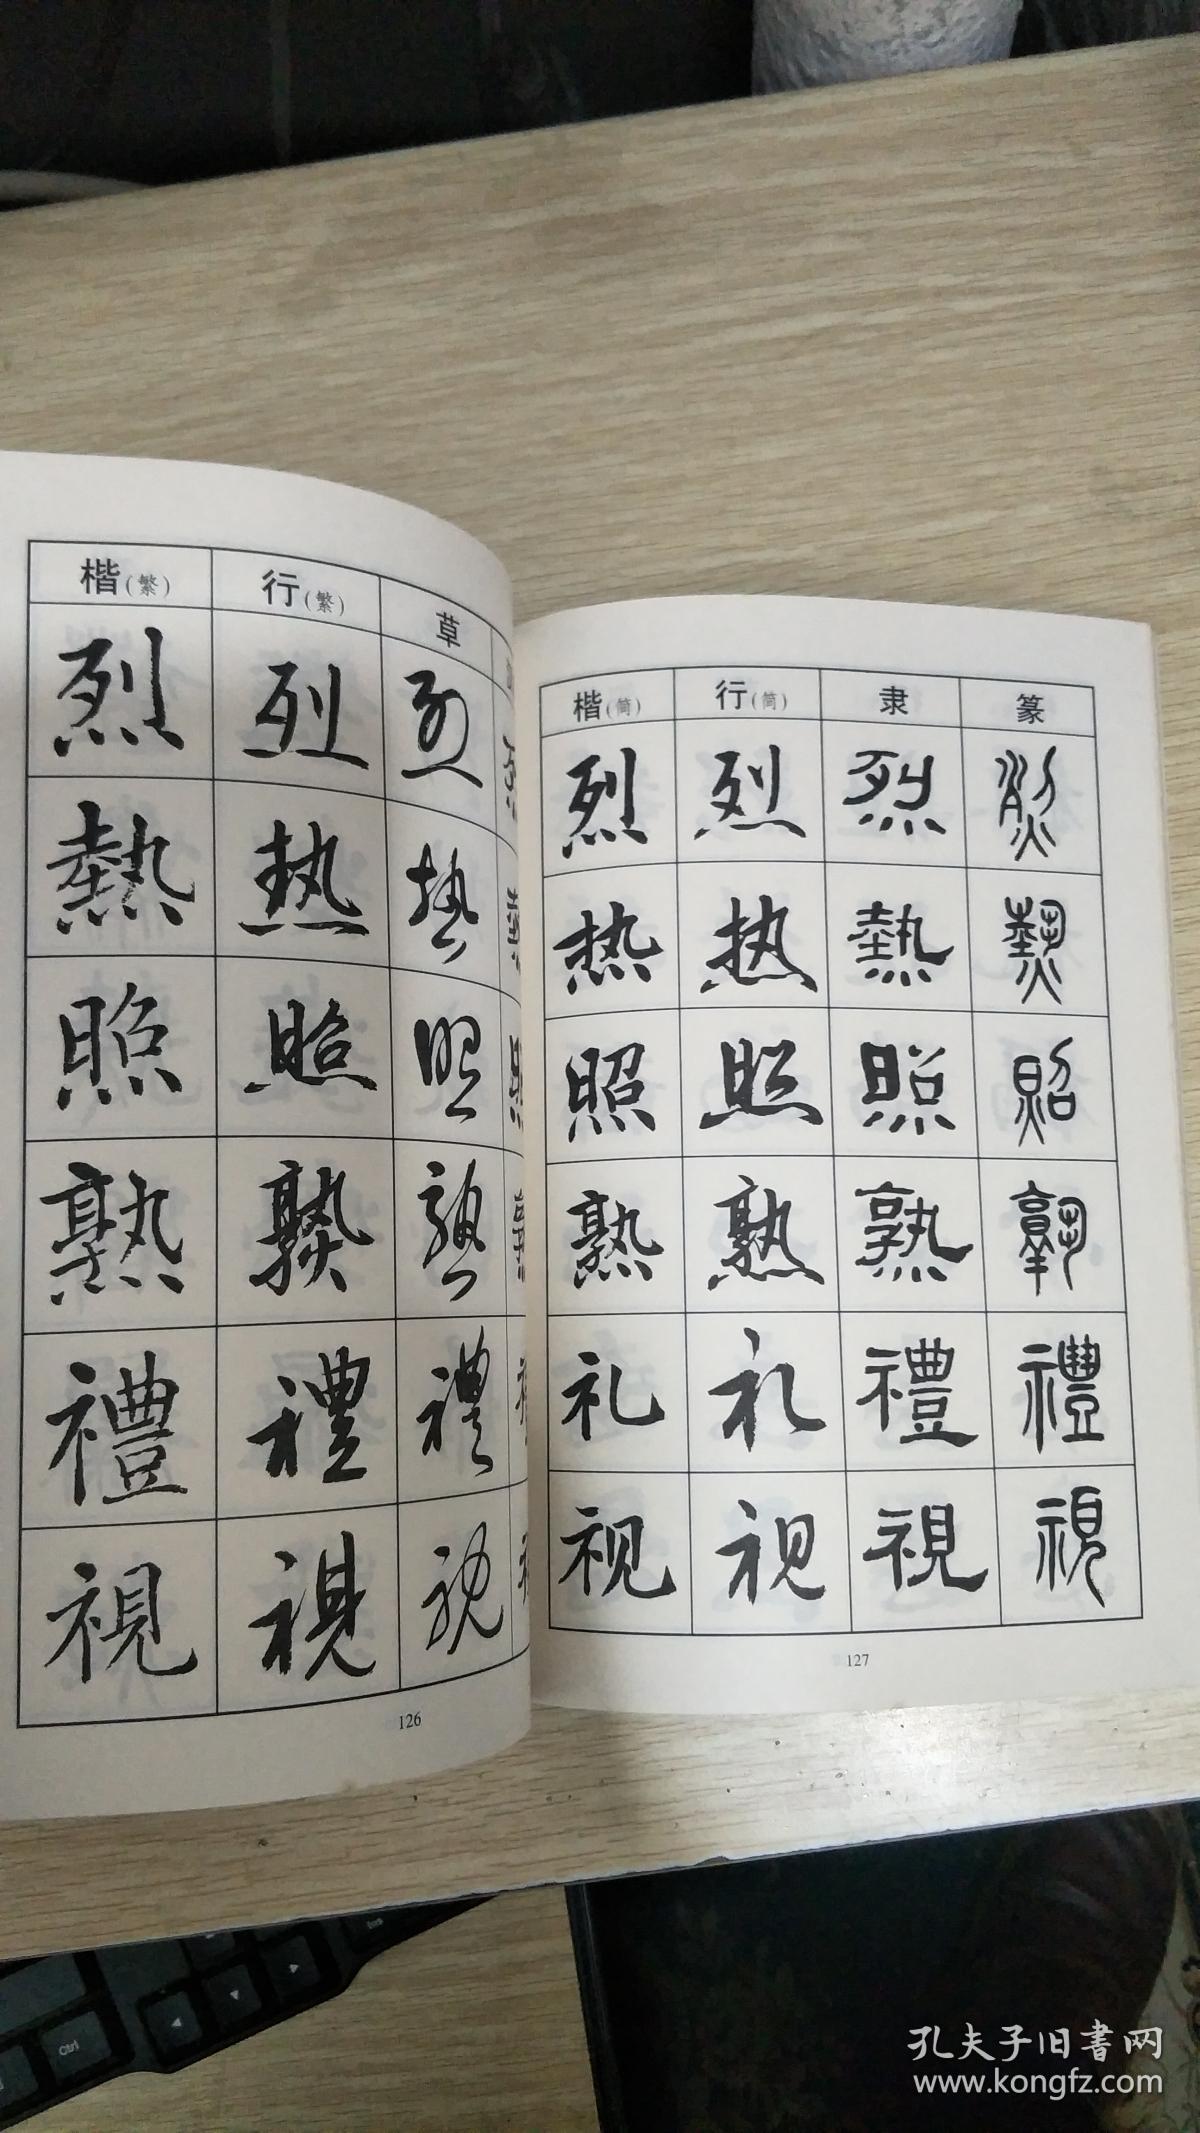 楷(繁) 行(繁) 草
烈 烈 烈
熱 熱 熱
照 照 照
熟 熟 熟
禮 禮 禮
視 視 視
126
楷(简) 行(简) 隶 篆
烈 烈 烈 烈
热 热 熱 熱
照 照 照 照
熟 熟 熟 孰
礼 礼 禮 禮
视 视 視 視
127
Ctrl
孔夫子旧书网
www.kongfz.com